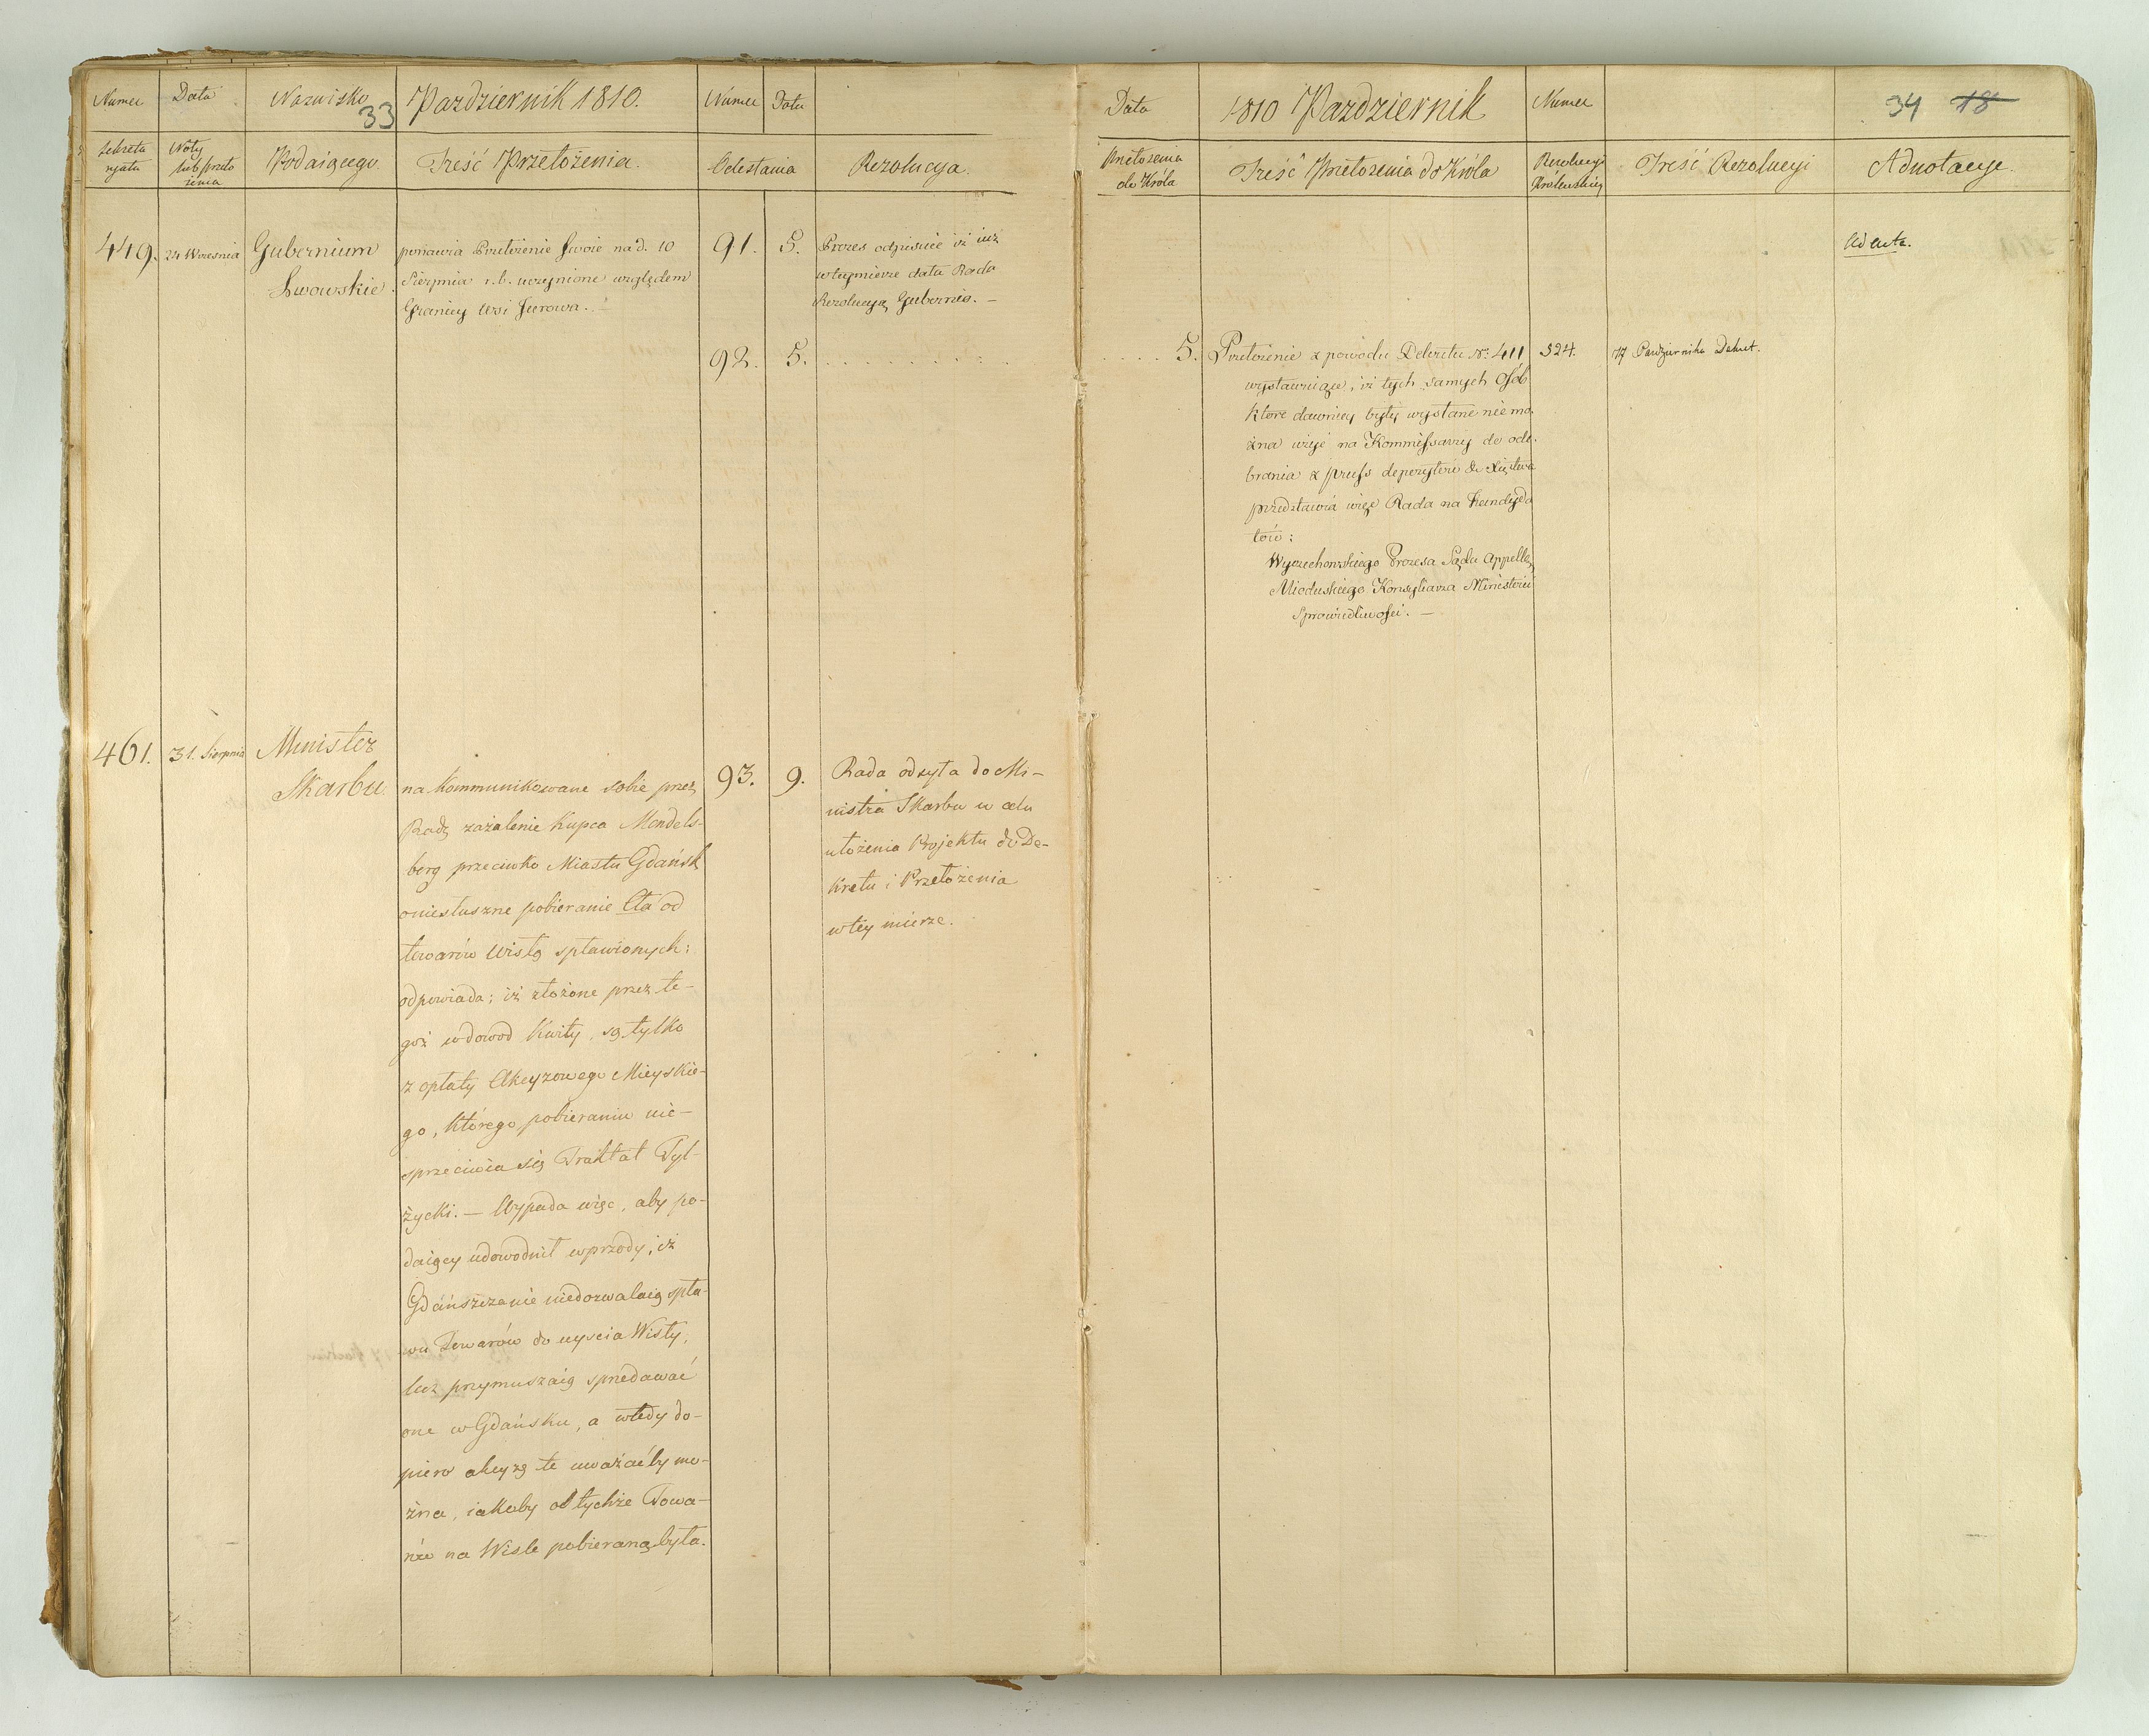 Numer
Data
Nazwisko
33
Pazdziernik 1810.
Numer
Data
Sekreta
ryatu
Noty
lub przeło
żenia
Podaiącego.
Treść Przełożenia.
Odesłania
Rezolucya.
449.
24 Wrzesnia
Gubernium
Lwowskie.
ponawia Przełożenie swoie na d. 10
Sierpnia r. b. uczynione względem
Granicy Wsi Jurowa.
91.
5.
Prezes odpisuie iż iuż
w tey mierze dała Rada
Rezolucyą Gubernio. —
92.
5.
461.
31. Sierpnia
Minister
Skarbu.
na kommunikowane sobie przez
Radę zażalenie Kupca Mendels-
berg przeciwko Miastu Gdańsk
o niesłuszne pobieranie Cła od
towarów Wisłą spławionych;
odpowiada; iż złożone przez te-
goż w dowod Kwity, są tylko
z opłaty Akcyzowego Mieyskie-
go, którego pobieraniu nie-
sprzeciwia się Traktat Tyl-
życki. — Wypada więc, aby po-
daiący udowodnił wprzody, iż
Gdańszczanie niedozwalaią spła-
wu Towarów do uyscia Wisły,
lecz przymuszaią sprzedawać
one w Gdańsku, a wtedy do-
piero akcyzę te uważać by mo-
żna, iakoby od tychże Towa-
rów na Wisle pobieraną była.
93.
9.
Rada odsyła do Mi-
nistra Skarbu w celu
ułożenia Projektu do De-
kretu i Przełożenia
w tey mierze.
Data
1810 Pazdziernik
Numer
34 18
Przełożenia
do Króla
Treść Przełożenia do Króla
Rezolucyi
Królewskiey
Treść Rezolucyi
Adnotacye.
Ad acta.
5.
Przełożenie z powodu Dekretu No. 411
wystawuiące, iż tych samych Osób
ktore dawniey były wysłane nie mo
żna użyć na Kommissarzy do ode-
brania z Pruss depozytów do Xięstwa
przedstawia więc Rada na Kandyda
tów:
Wyczechowskiego Prezesa Sądu Appella,
Mioduskiego Konsyliarza Ministerii
Sprawiedliwości. —
524.
17 Pazdziernika Dekret.